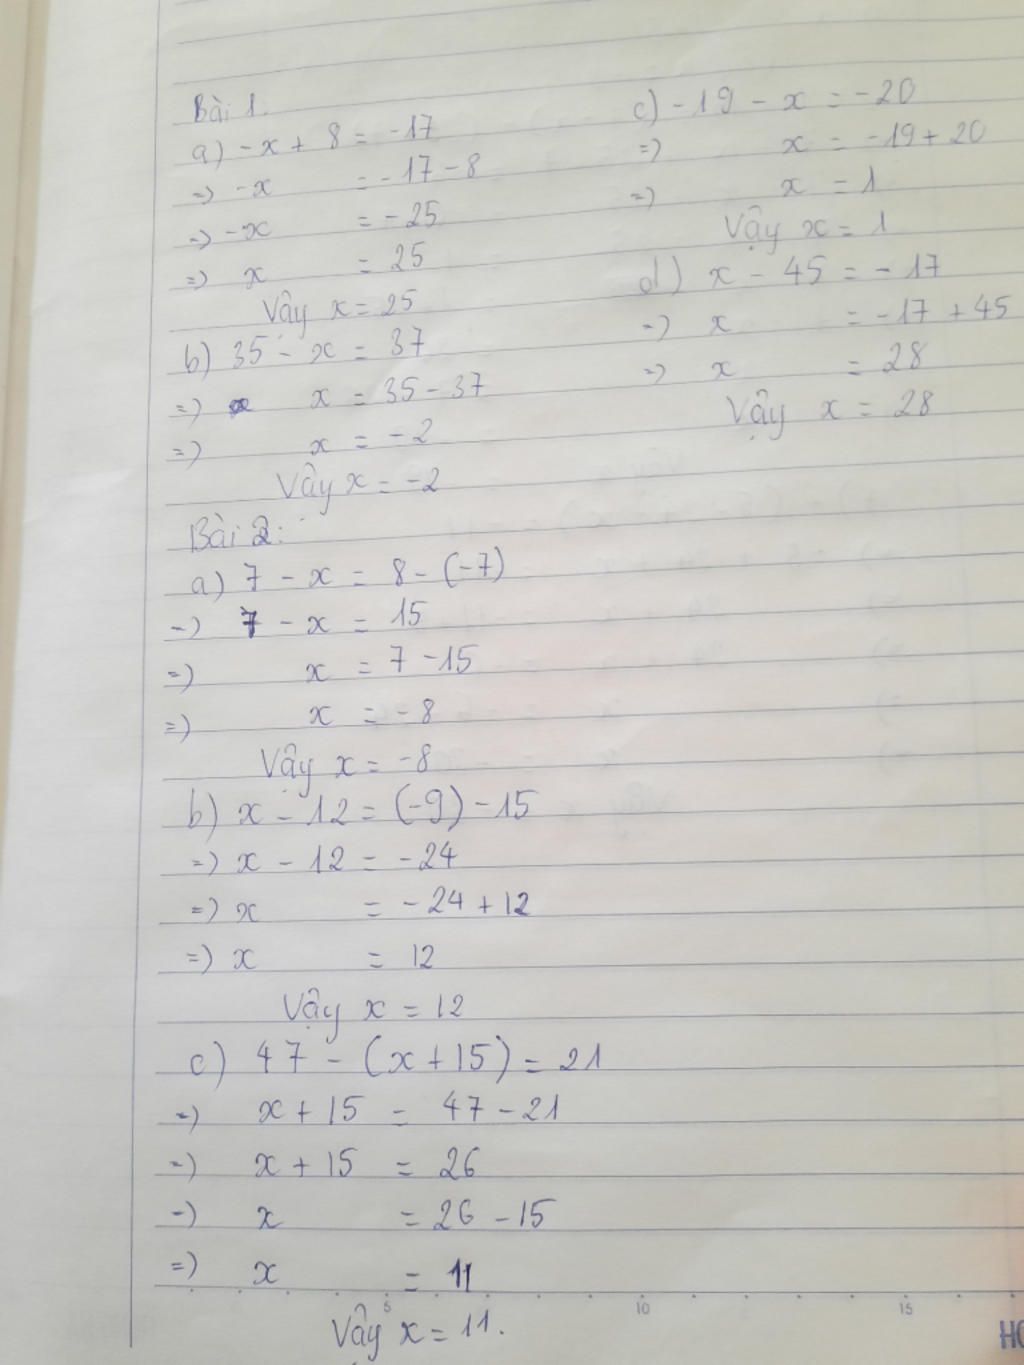 Bài 1.
a) -x + 8 = -17
=> -x = -17 - 8
=> -x = -25
=> x = 25
Vậy x = 25
b) 35 - x = 37
=> x = 35 - 37
=> x = -2
Vậy x = -2
c) -19 - x = -20
=> x = -19 + 20
=> x = 1
Vậy x = 1
d) x - 45 = -17
=> x = -17 + 45
=> x = 28
Vậy x = 28
Bài 2:
a) 7 - x = 8 - (-7)
=> 7 - x = 15
=> x = 7 - 15
=> x = -8
Vậy x = -8
b) x - 12 = (-9) - 15
=> x - 12 = -24
=> x = -24 + 12
=> x = 12
Vậy x = 12
c) 47 - (x + 15) = 21
=> x + 15 = 47 - 21
=> x + 15 = 26
=> x = 26 - 15
=> x = 11
5 10 15
Vậy x = 11.